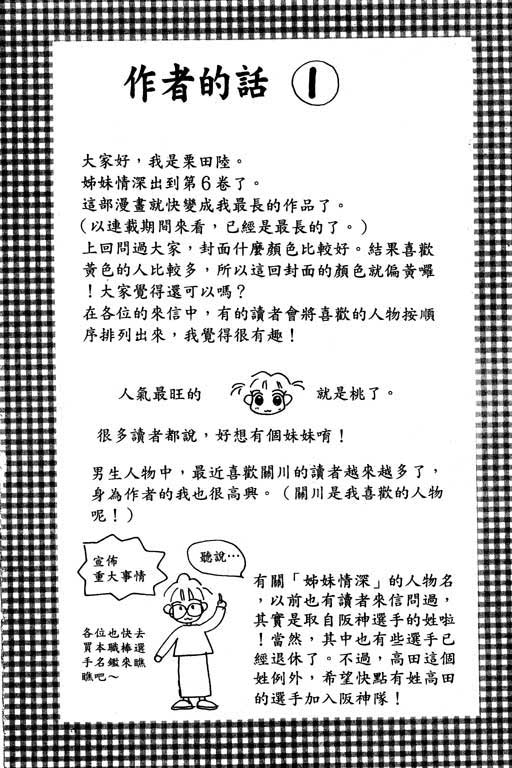 作者的話 ①
大家好，我是栗田陸。
姊妹情深出到第6卷了。
這部漫畫就快變成我最長的作品了。
(以連載期間來看，已經是最長的了。)
上回問過大家，封面什麼顏色比較好。結果喜歡
黃色的人比較多，所以這回封面的顏色就偏黃囉
！大家覺得還可以嗎？
在各位的來信中，有的讀者會將喜歡的人物按順
序排列出來，我覺得很有趣！
人氣最旺的 就是桃了。
很多讀者都說，好想有個妹妹唷！
男生人物中，最近喜歡關川的讀者越來越多了，
身為作者的我也很高興。（關川是我喜歡的人物
呢！）
宣佈
重大事情
聽說…
各位也快去
買本職棒選
手名鑑來瞧
瞧吧～
有關「姊妹情深」的人物名
，以前也有讀者來信問過，
其實是取自阪神選手的姓啦
！當然，其中也有些選手已
經退休了。不過，高田這個
姓例外，希望快點有姓高田
的選手加入阪神隊！